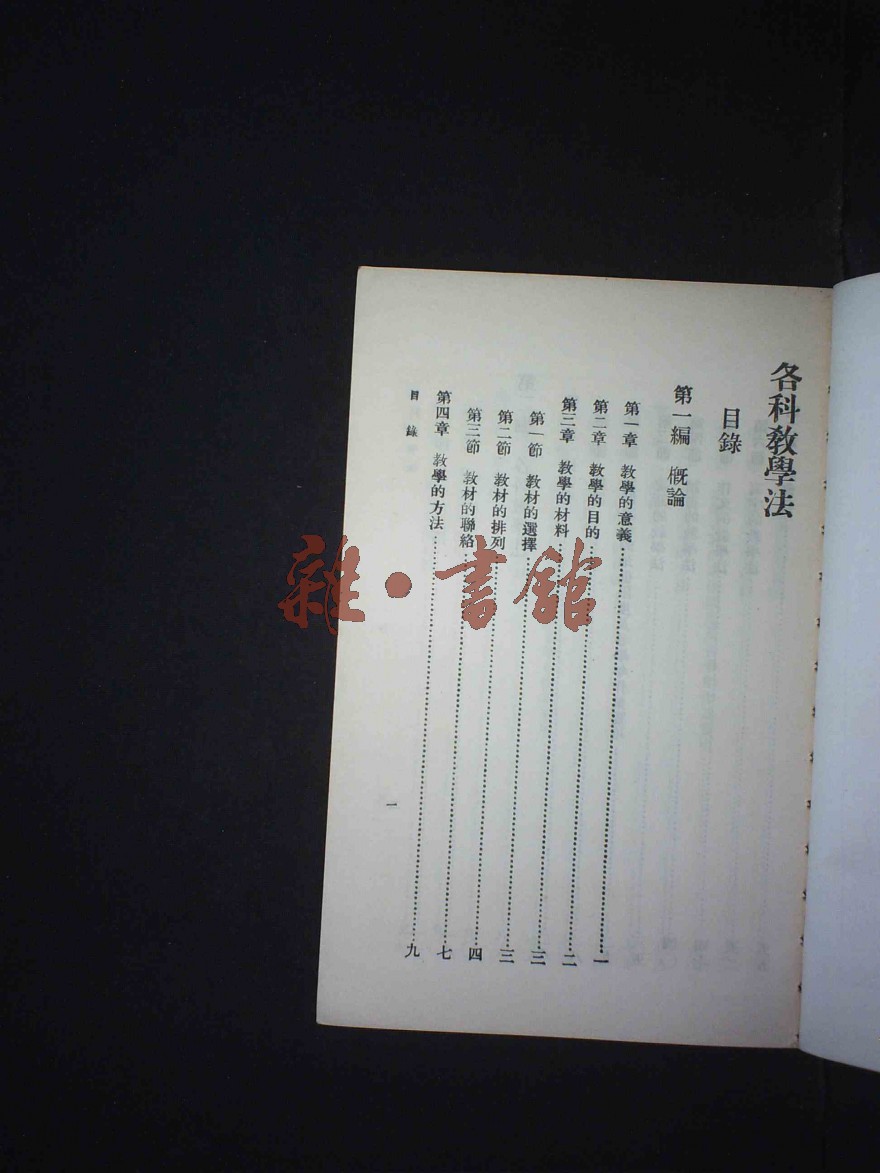 各科教學法
目錄
第一編 概論
第一章 教學的意義……一
第二章 教學的目的……二
第三章 教學的材料……三
第一節 教材的選擇……三
第二節 教材的排列……四
第三節 教材的聯絡……七
第四章 教學的方法……九
目錄
一
雜·書館